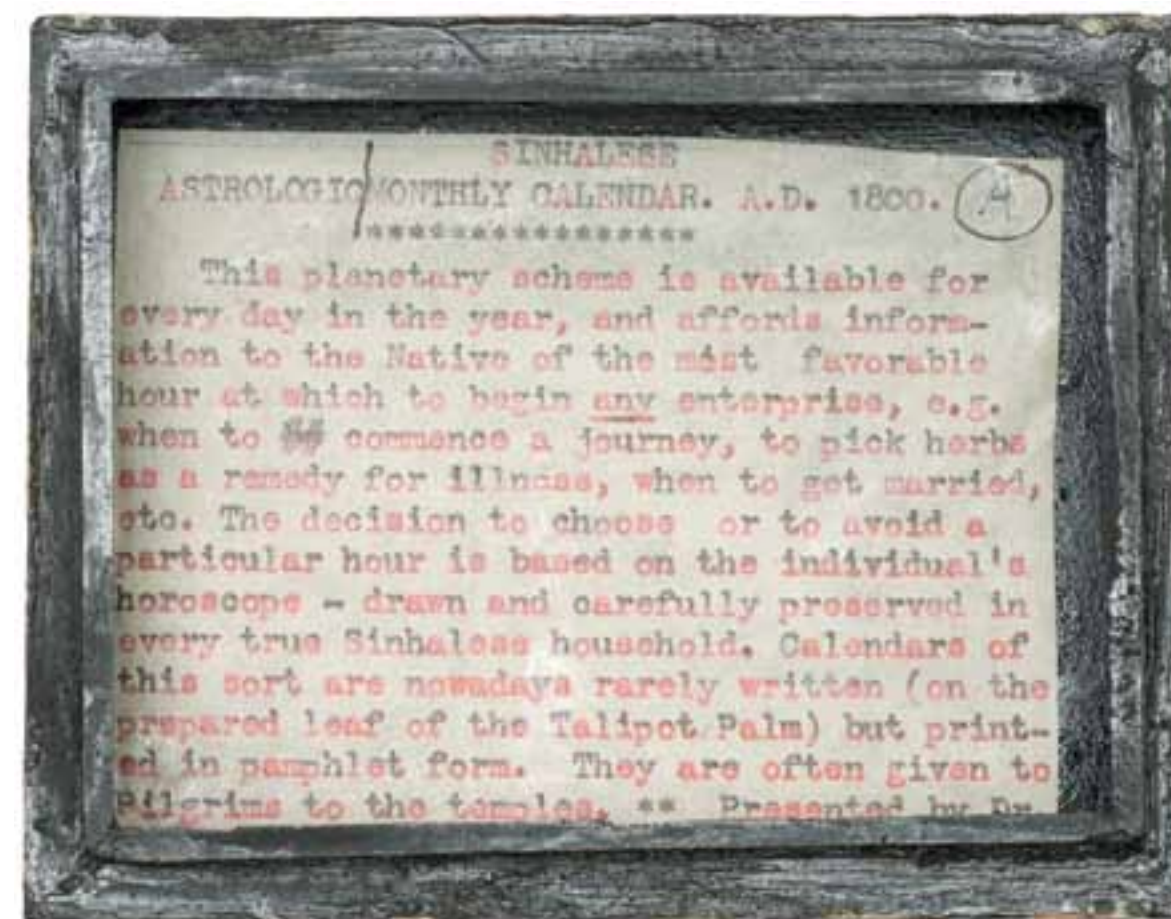 SINHALESE
ASTROLOGIC/MONTHLY CALENDAR. A.D. 1800.
****************
This planetary scheme is available for
every day in the year, and affords inform-
ation to the Native of the mást favorable
hour at which to begin any enterprise, e.g.
when to commence a journey, to pick herbs
as a remedy for illness, when to get married,
etc. The decision to choose or to avoid a
particular hour is based on the individual's
horoscope - drawn and carefully preserved in
every true Sinhalese household. Calendars of
this sort are nowadays rarely written (on the
prepared leaf of the Talipot Palm) but print-
ed in pamphlet form. They are often given to
Pilgrims to the temples. ** Presented by Dr